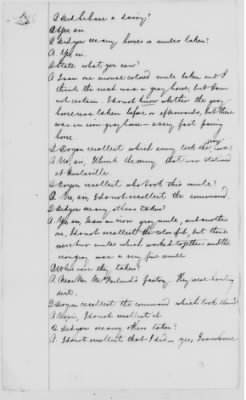 Q Did he have a dairy?
A Yes, sir.
Q Did you see any horses or mules taken?
A Yes, sir.
Q State what you saw?
A I saw one mouse colored mule taken and I
think the next was a gray horse, but I am
not certain. I do not know whether the gray
horse was taken before or afterwards, but there
was an iron gray horse - a very fast pacing
horse
Q Do you recollect which army took them away?
A No, sir, I think the army that was stationed
at Huntsville
Q Do you recollect who took this mule?
A No, sir, I do not recollect the command
Q Did you see any others taken?
A Yes, sir, I saw an iron gray mule, and another
one, I do not recollect the color of it, but there
were two mules which worked together and the
iron gray was a very fine mule
Q Where were they taken?
A Near Mr. McFarland's factory. They were hauling
dirt.
Q Do you recollect the command which took them?
A No sir, I do not recollect it.
Q Did you see any others taken?
A I do not recollect that I did - yes, I saw some